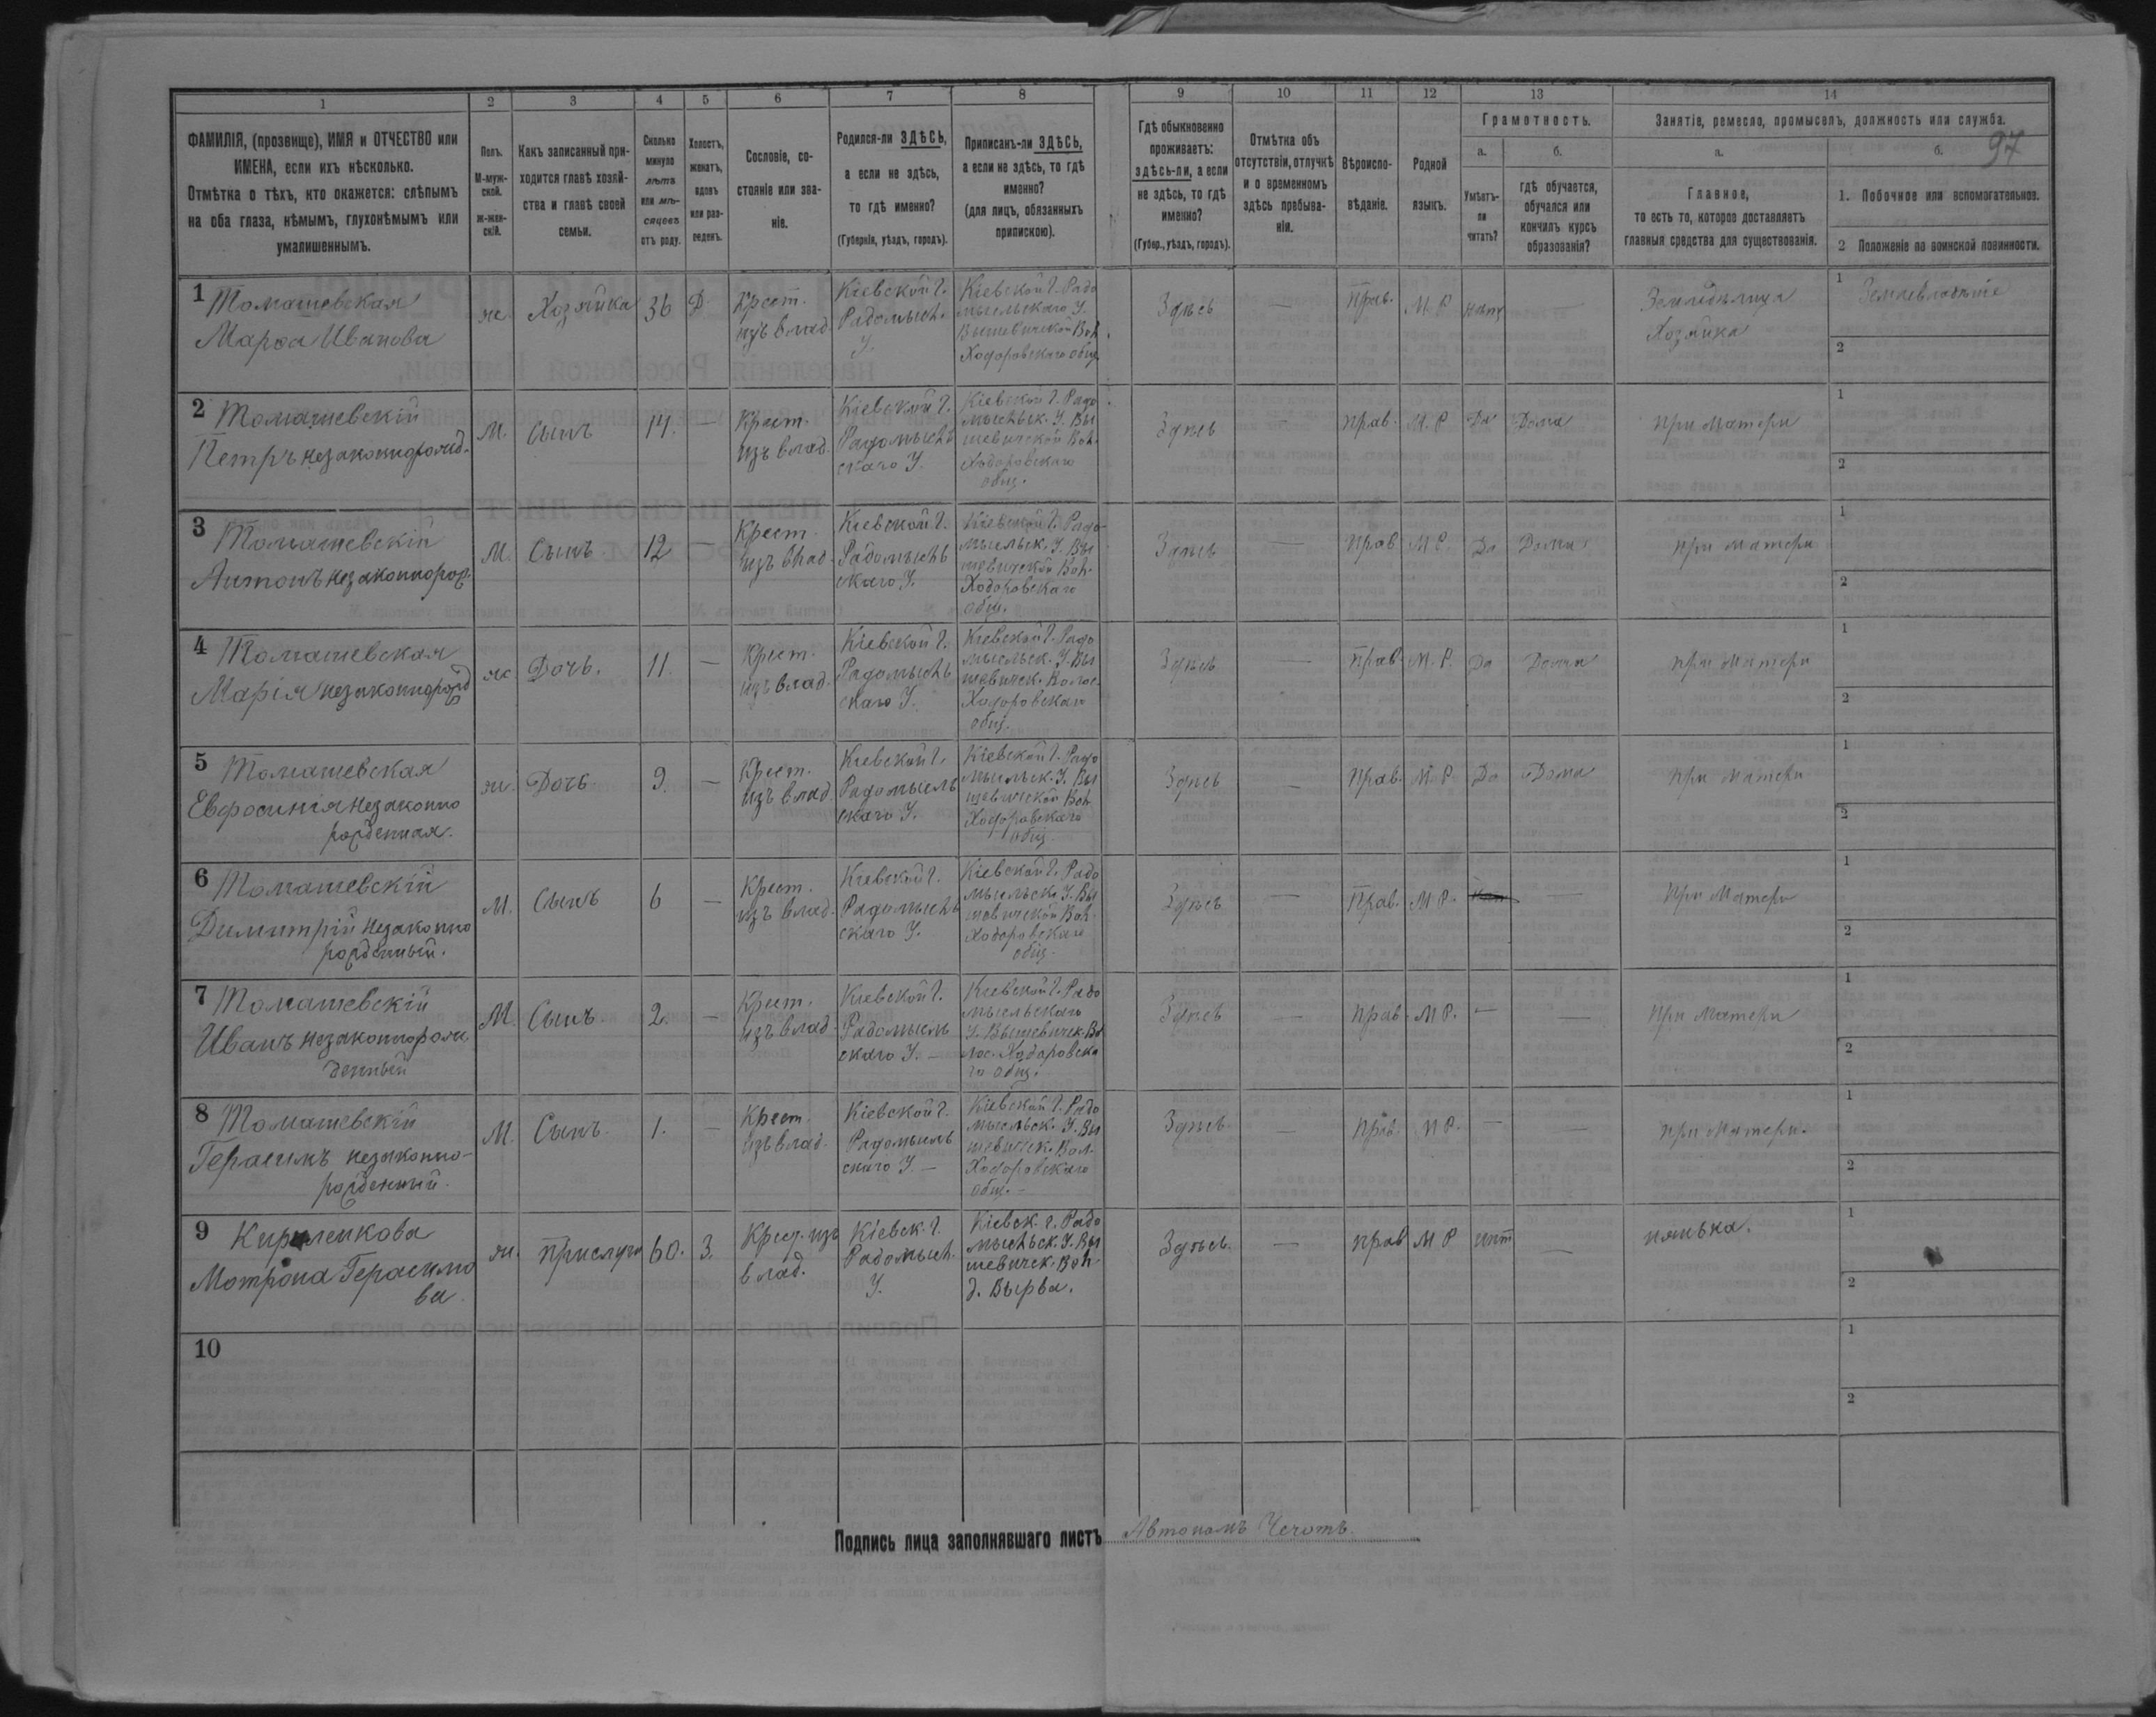 97
1 2 3 4 5 6 7 8 9 10 11 12 13 14
ФАМИЛІЯ, (прозвище), ИМЯ и ОТЧЕСТВО или
ИМЕНА, если ихъ нѣсколько.
Отмѣтка о тѣхъ, кто окажется: слѣпымъ
на оба глаза, нѣмымъ, глухонѣмымъ или
умалишеннымъ.
Полъ.
М-муж-
ской.
ж-жен-
скій.
Какъ записанный при-
ходится главѣ хозяй-
ства и главѣ своей
семьи.
Сколько
минуло
лѣтъ
или мѣ-
сяцевъ
отъ роду.
Холостъ,
женатъ,
вдовъ
или раз-
веденъ.
Сословіе, со-
стояніе или зва-
ніе.
Родился-ли ЗДѢСЬ,
а если не здѣсь,
то гдѣ именно?
(Губернія, уѣздъ, городъ).
Приписанъ-ли ЗДѢСЬ,
а если не здѣсь, то гдѣ
именно?
(для лицъ, обязанныхъ
припискою).
Гдѣ обыкновенно
проживаетъ:
здѣсь-ли, а если
не здѣсь, то гдѣ
именно?
(Губер., уѣздъ, городъ).
Отмѣтка объ
отсутствіи, отлучкѣ
и о временномъ
здѣсь пребыва-
ніи.
Вѣроиспо-
вѣданіе.
Родной
языкъ.
Грамотность.
а.
Умѣетъ-
ли
читать?
б.
гдѣ обучается,
обучался или
кончилъ курсъ
образованія?
Занятіе, ремесло, промыселъ, должность или служба.
а.
Главное,
то есть то, которое доставляетъ
главныя средства для существованія.
б.
1. Побочное или вспомогательное.
2 Положеніе по воинской повинности.
1 Томашевская
Марфа Иванова
ж. Хозяйка 36 Д
Крест.
изъ влад.
Кіевской г.
Радомысл.
У.
Кіевской г. Радо
мысльскаго У.
Вышевичской Вол.
Ходоровскаго общ.
Здѣсь — Прав. М. Р. нѣтъ —
Хозяйка
Землевладѣніе
1
2
2 Томашевскій
Петръ незаконнорожд.
М. Сынъ 14. —
Крест.
изъ влад.
Кіевской г.
Радомысль
скаго У.
Кіевской г. Радо
мысльск. У. Вы
шевичской Вол.
Ходоровскаго
общ.
Здѣсь — прав. М. Р. Да Дома при матери
1
2
3 Томашевскій
Антонъ незаконнорож.
М. Сынъ 12 —
Крест.
изъ влад.
Кіевской г.
Радомысль
скаго У.
Кіевской г. Радо
мысльск. У. Вы
шевичской Вол.
Ходоровскаго
общ.
Здѣсь — прав. М. Р. Да Дома при матери
1
2
4 Томашевская
Марія незаконнорожд
ж. Дочь. 11. —
Крест.
изъ влад.
Кіевской г.
Радомысль
скаго У.
Кіевской г. Радо
мысльск. У. Вы
шевичск. Волос.
Ходоровскаго
общ.
Здѣсь — Прав. М. Р. Да Дома при матери
1
2
5 Томашевская
Евфросинія незаконно
рожденная.
ж. Дочь 9. —
Крест.
изъ влад.
Кіевской г.
Радомысль
скаго У.
Кіевской г. Радо
мысльск. У. Вы
шевичской Вол.
Ходоровскаго
общ.
Здѣсь — прав. М. Р. Да Дома при матери
1
2
6 Томашевскій
Димитрій незаконно
рожденный.
М. Сынъ 6 —
Крест.
изъ влад.
Кіевской г.
Радомысль
скаго У.
Кіевской г. Радо
мысльск. У. Вы
шевичской Вол.
Ходоровскаго
общ.
Здѣсь — Прав. М. Р. — при матери
1
2
7 Томашевскій
Иванъ незаконнорож
денный
М. Сынъ. 2. —
Крест.
изъ влад.
Кіевской г.
Радомысль
скаго У. —
Кіевской г. Радо
мысльскаго
У. Вышевичск. Во
лос. Ходоровска
го общ.
Здѣсь — прав. М. Р. — — при матери
1
2
8 Томашевскій
Герасимъ незаконно-
рожденный.
М. Сынъ. 1. —
Крест.
изъ влад.
Кіевской г.
Радомысль
скаго У. —
Кіевской г. Радо
мысльск. У. Вы
шевичск. Вол.
Ходоровскаго
общ. —
Здѣсь — прав. М. Р. — — при матери.
1
2
9 Кириленкова
Мотрона Герасимо
ва.
ж. прислуга 60. З.
Крест. изъ
влад.
Кіевск. г.
Радомысл.
У.
Кіевск. г. Радо
мысльск. У. Вы
шевичск. Вол.
д. Вырва.
Здѣсь. — прав М Р нѣт — нянька.
1
2
10
1
2
Подпись лица заполнявшаго листъ Автономъ